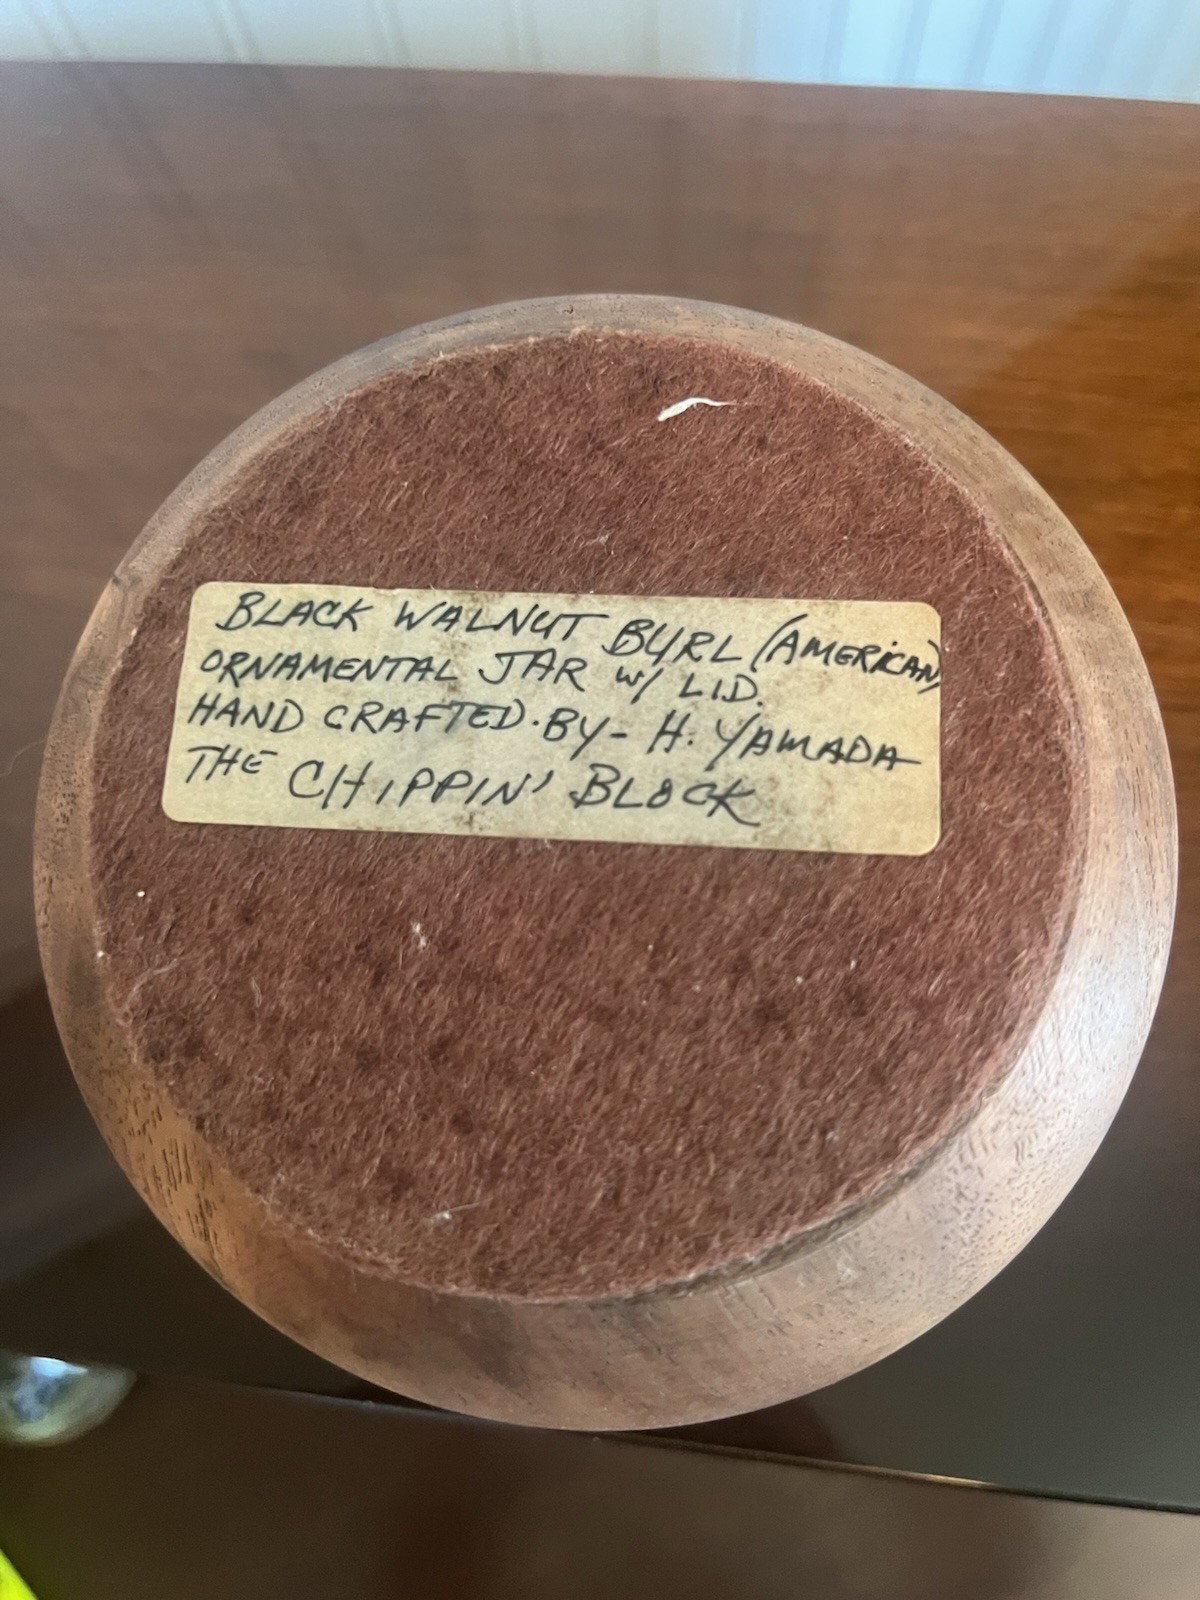 BLACK WALNUT BURL (AMERICAN)
ORNAMENTAL JAR W/ LID.
HAND CRAFTED. BY - H. YAMADA
THE CHIPPIN' BLOCK